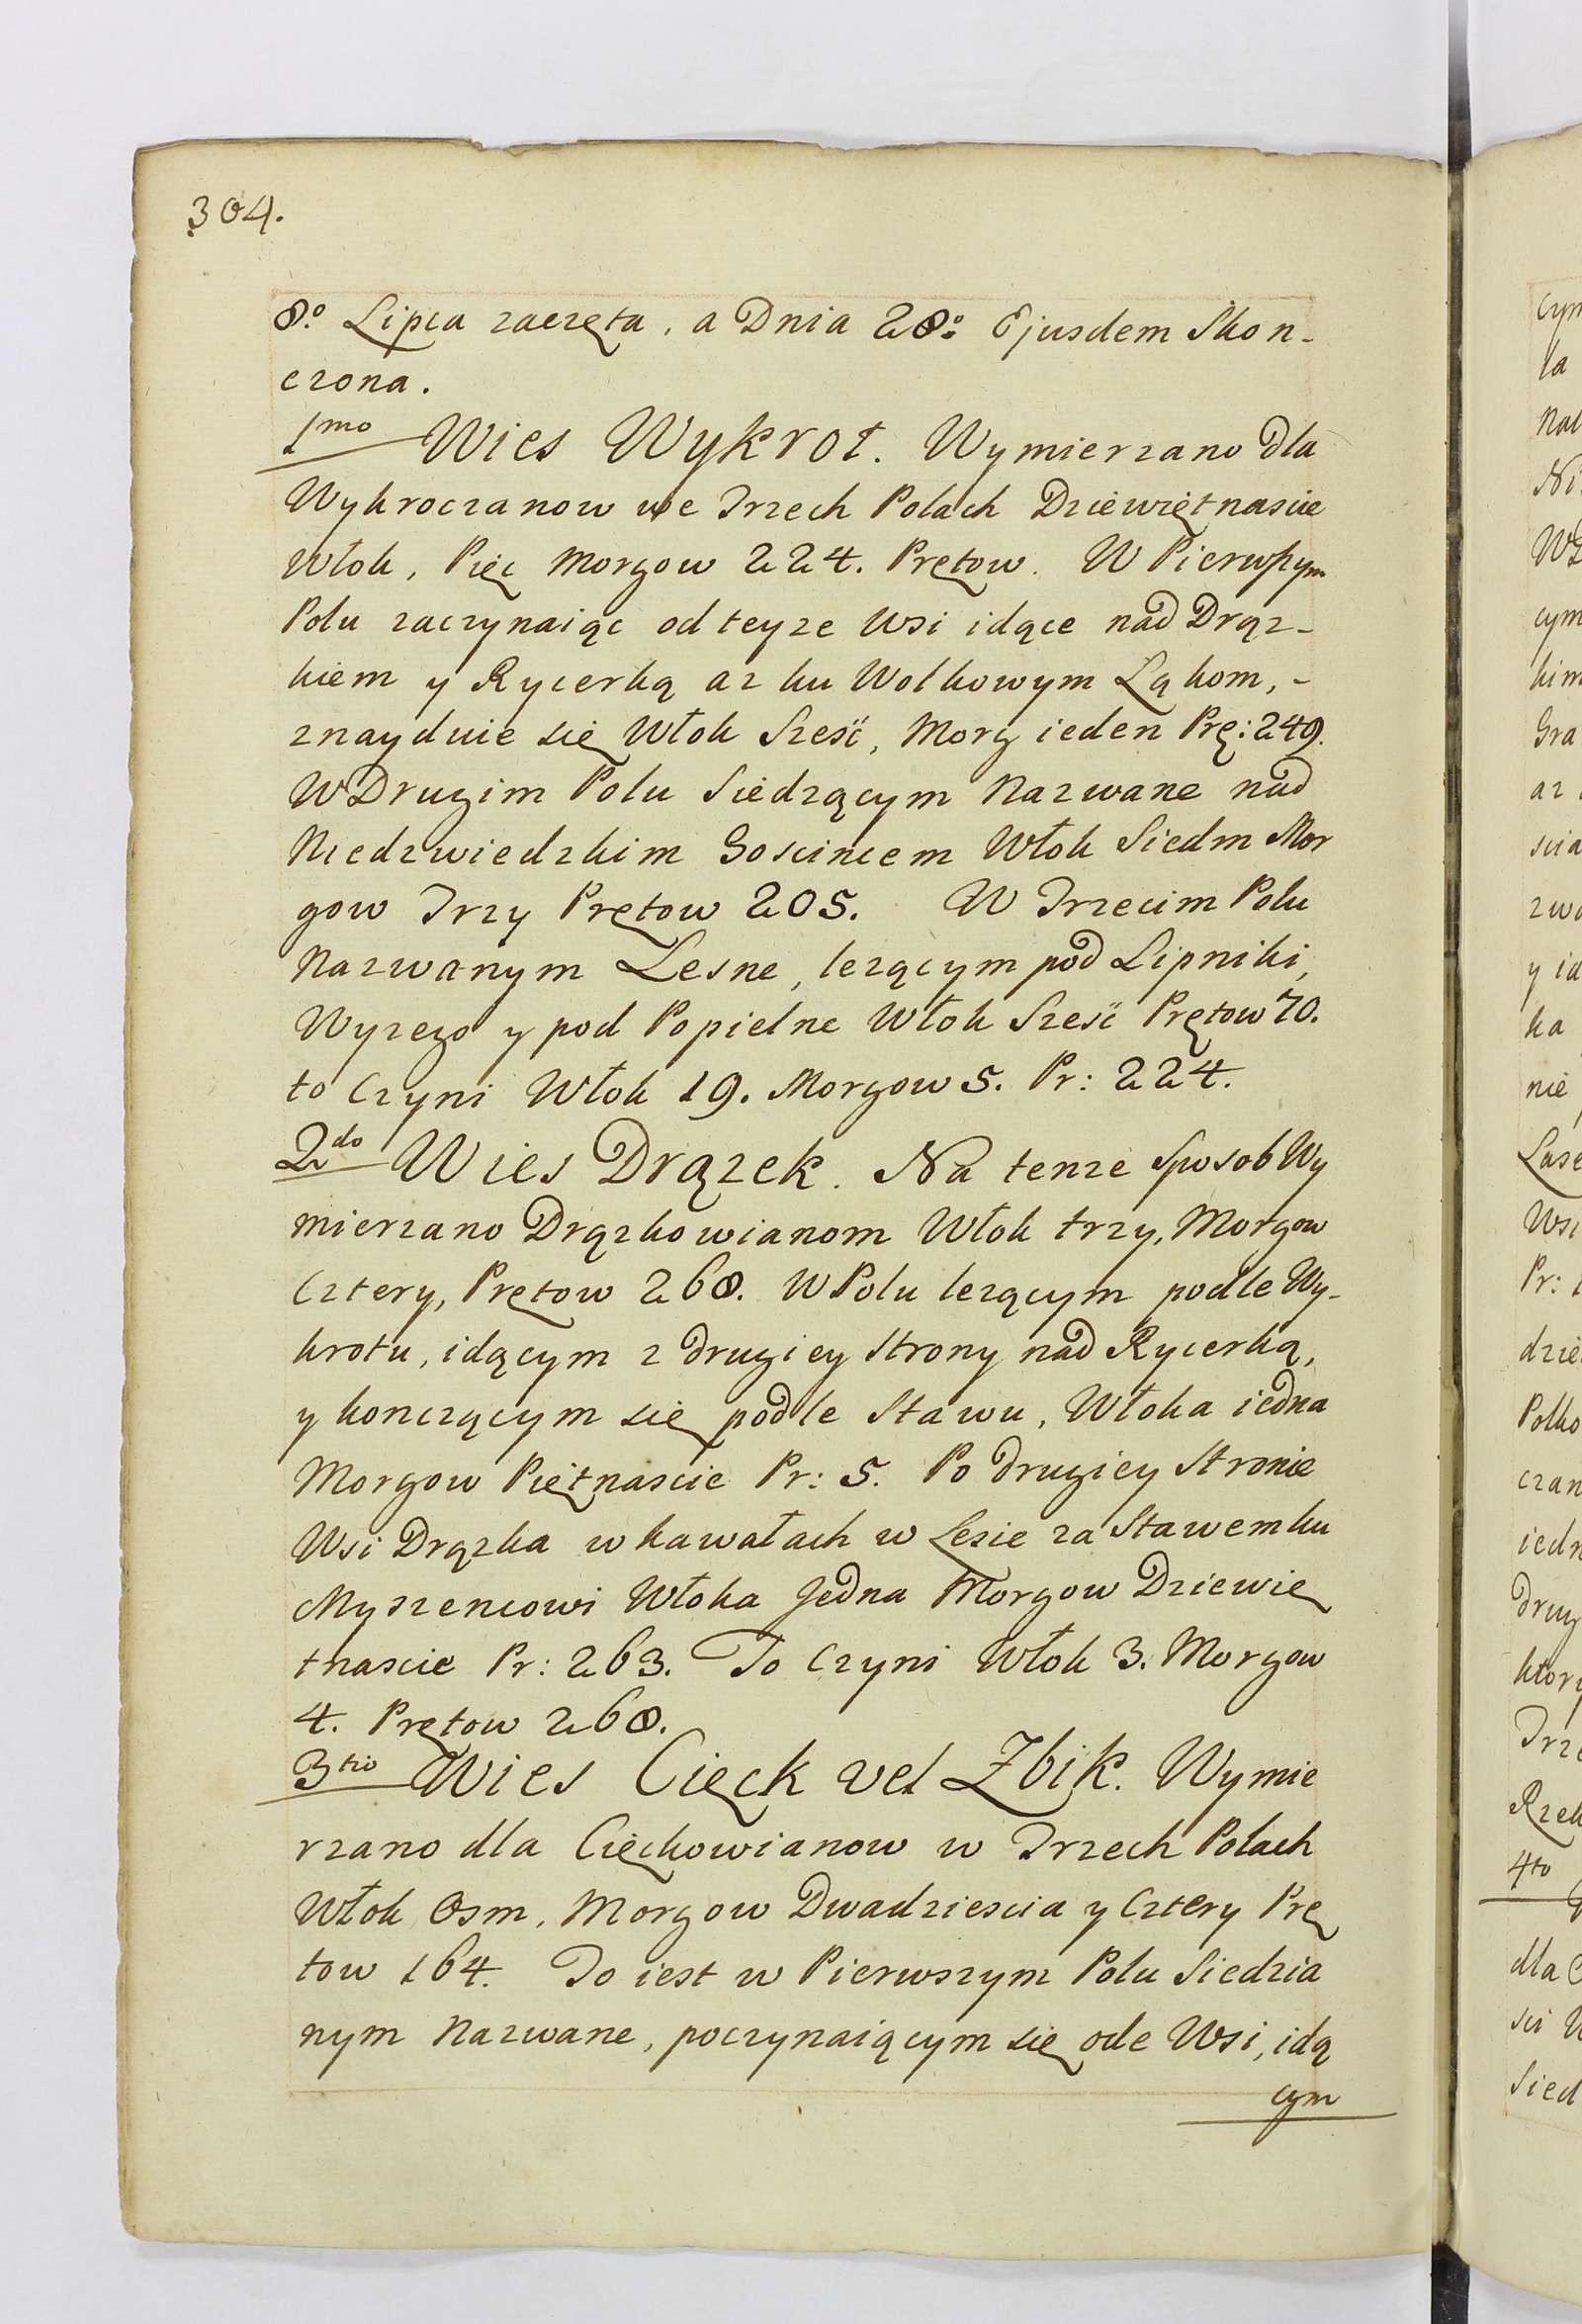 304.
8º Lipca zaczęta, a Dnia 28º Ejusdem Skon-
czona.
1mo Wies Wykrot. Wymierzano dla
Wykroczanow we Trzech Polach Dziewiętnascie
Włok, Pięc Morgow 224. Prętow. W Pierwszym
Polu zaczynaiąc od teyze Wsi idące nad Drąz-
kiem y Rycerką az ku Wolkowym Ląkom, -
znayduie się Włok Szesc, Morg ieden Prę: 249.
W Drugim Polu Siedzącym Nazwane nad
Niedzwiedzkim Goscincem Włok Siedm Mor
gow Trzy Prętow 205. W Trzecim Polu
Nazwanym Lesne, lezącym pod Lipniki,
Wyzego y pod Popielne Włok Szesc Prętow 70.
to Czyni Włok 19. Morgow 5. Pr: 224.
2do Wies Drązek. Na tenze Sposob Wy
mierzano Drązkowianom Włok trzy, Morgow
Cztery, Prętow 268. W Polu lezącym podle Wy-
krotu, idącym z drugiey Strony nad Rycerką,
y konczącym się podle Stawu, Włoka iedna
Morgow Piętnascie Pr: 5. Po drugiey Stronie
Wsi Drązka w kawałach w Lesie za Stawem ku
Myszencowi Włoka Jedna Morgow Dziewię
tnascie Pr: 263. To Czyni Włok 3. Morgow
4. Prętow 268.
3tio Wies Cięck vel Zbik. Wymie
rzano dla Cięckowianow w Trzech Polach
Włok Osm, Morgow Dwadziescia y Cztery Prę
tow 164. To iest w Pierwszym Polu Siedzia
nym Nazwane, poczynaiącym się ode Wsi, idą
cym